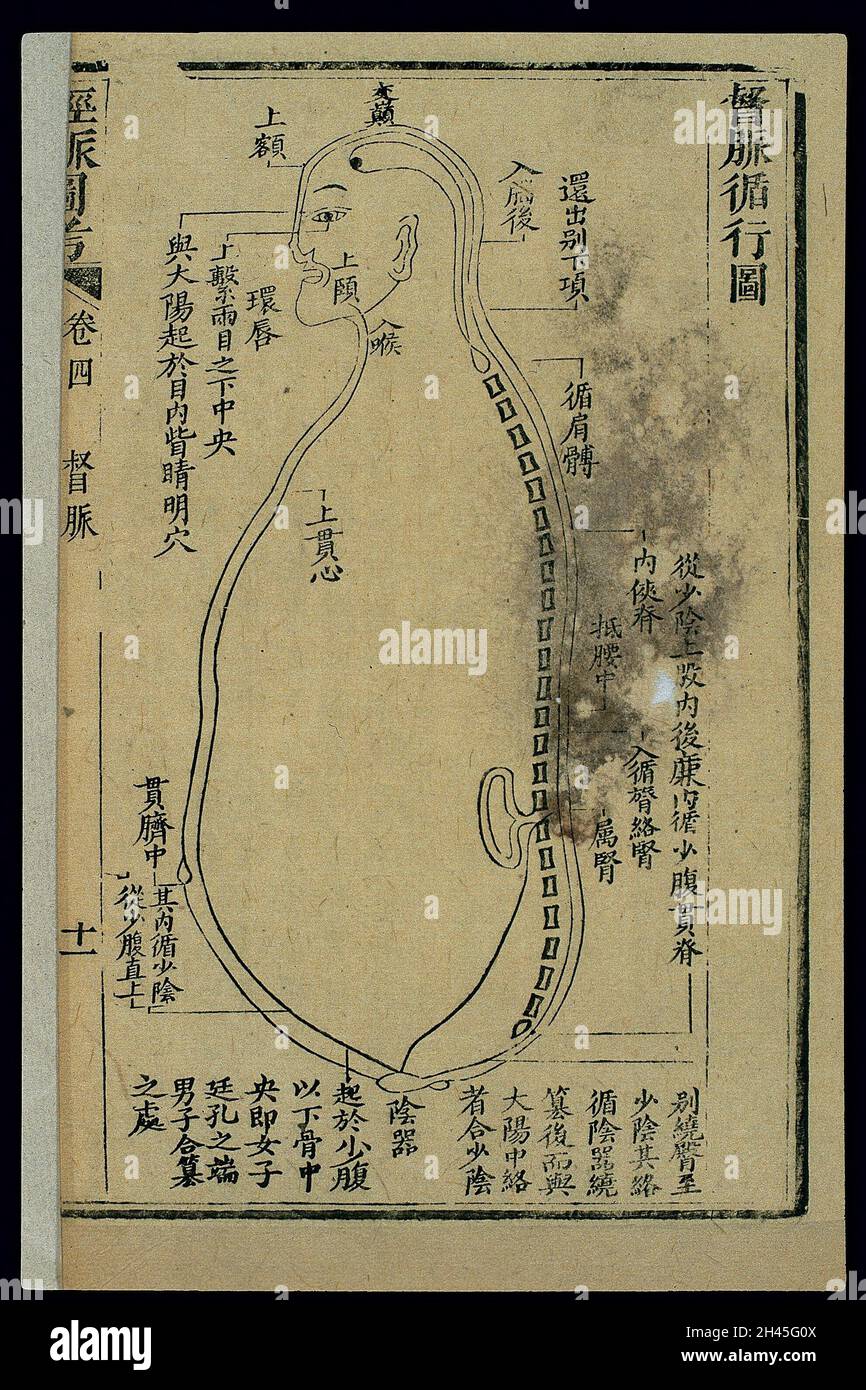 督脈循行圖
還出别下項
入腦後
交巔
上額
循肩髆
内俠脊
抵腰中
從少陰上股内後廉内循少腹貫脊
入循膂絡腎
属腎
上頤
入喉
環唇
上繫兩目之下中央
與大陽起於目内眥睛明穴
上貫心
貫臍中
其内循少陰
從少腹直上
别繞臀至
少陰其絡
循陰器繞
篡後而與
大陽中絡
者合少陰
陰器
起於少腹
以下骨中
央即女子
廷孔之端
男子合篡
之處
經脈圖考
卷四
督脈
十一
alamy
Image ID: 2H45G0X
www.alamy.com